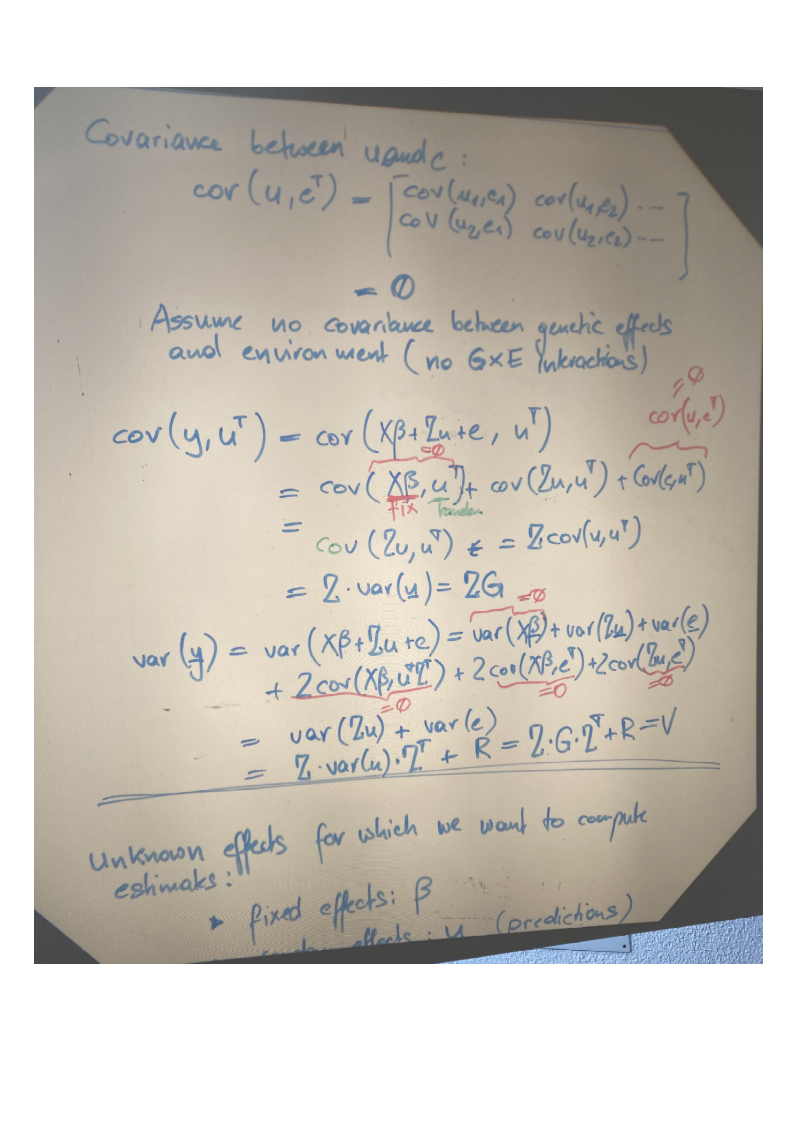 Covariance between u and e :
cov(u, eᵀ) = [ cov(u₁,e₁) cov(u₁,e₂) ...
cov(u₂,e₁) cov(u₂,e₂) ... ]
= 0
Assume no covariance between genetic effects
and environment ( no G×E interactions)
= 0
cov(u,eᵀ)
cov(y, uᵀ) = cov(Xβ + Zu + e , uᵀ)
= 0
= cov( Xβ, uᵀ) + cov(Zu, uᵀ) + cov(e, uᵀ)
fix
= cov (Zu, uᵀ) = Z cov(u, uᵀ)
= Z · var(u) = ZG
= 0
var(y) = var(Xβ + Zu + e) = var(Xβ) + var(Zu) + var(e)
+ 2 cov(Xβ, uᵀZᵀ) + 2 cov(Xβ, eᵀ) + 2 cov(Zu, eᵀ)
= 0 = 0 = 0
= var(Zu) + var(e)
= Z · var(u) · Zᵀ + R = Z · G · Zᵀ + R = V
Unknown effects for which we want to compute
estimates :
fixed effects : β
effects : u (predictions)